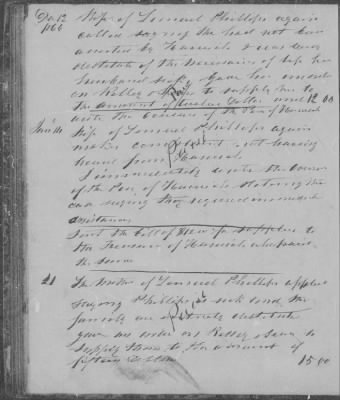 Dec 12 Wife of Lemuel Phillips again
1866 called saying she had not been
assisted by Harwich & was very
destitute of the necessaries of life her
husband sick. Gave her order
on Kelley to supply her to
the amount of twelve dollars and 12 00
wrote the Overseers of the Poor of Harwich
Wife of Lemuel Phillips again
makes complaint not having
heard from Harwich
I immediately wrote the Overseers
of the Poor of Harwich stating the
case saying they required immediate
assistance
Sent the bill of for supplies to
the Treasurer of Harwich who paid
the same
21 The mother of Lemuel Phillips applied
saying Phillips is sick and the
family are entirely destitute
gave an order on Kelley to
supply them to the amount of
fifteen dollars 15 00